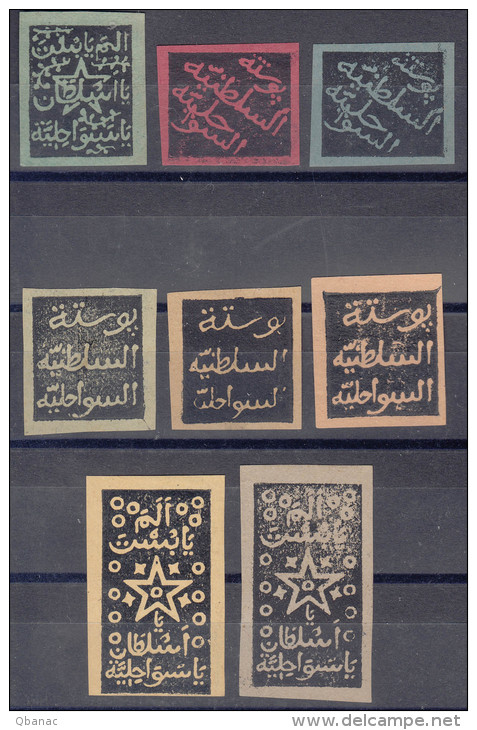 الم يا بست
يا اسلطان
يا سواحلية
بوستة
السلطنيّه
السواحليّه
بوستة
السلطنيّه
السواحليّه
بوستة
السلطنيّه
السواحليّه
بوستة
السلطنيّه
السواحليّه
بوستة
السلطنيّه
السواحليّه
اَلمَ
يا بُسْت
يا
اَسُلطان
يا سَوَاحِلِيَّة
اَلمَ
يا بُسْت
يا
اَسُلطان
يا سَوَاحِلِيَّة
Qbanac
delcampe.net